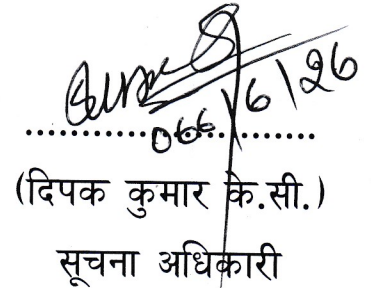 066/6/26
(दिपक कुमार के.सी.)
सूचना अधिकारी